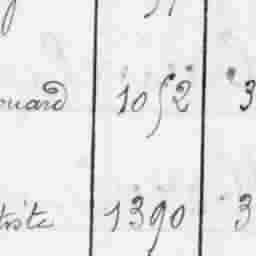 ouard 1052 3
tiste 1390 3